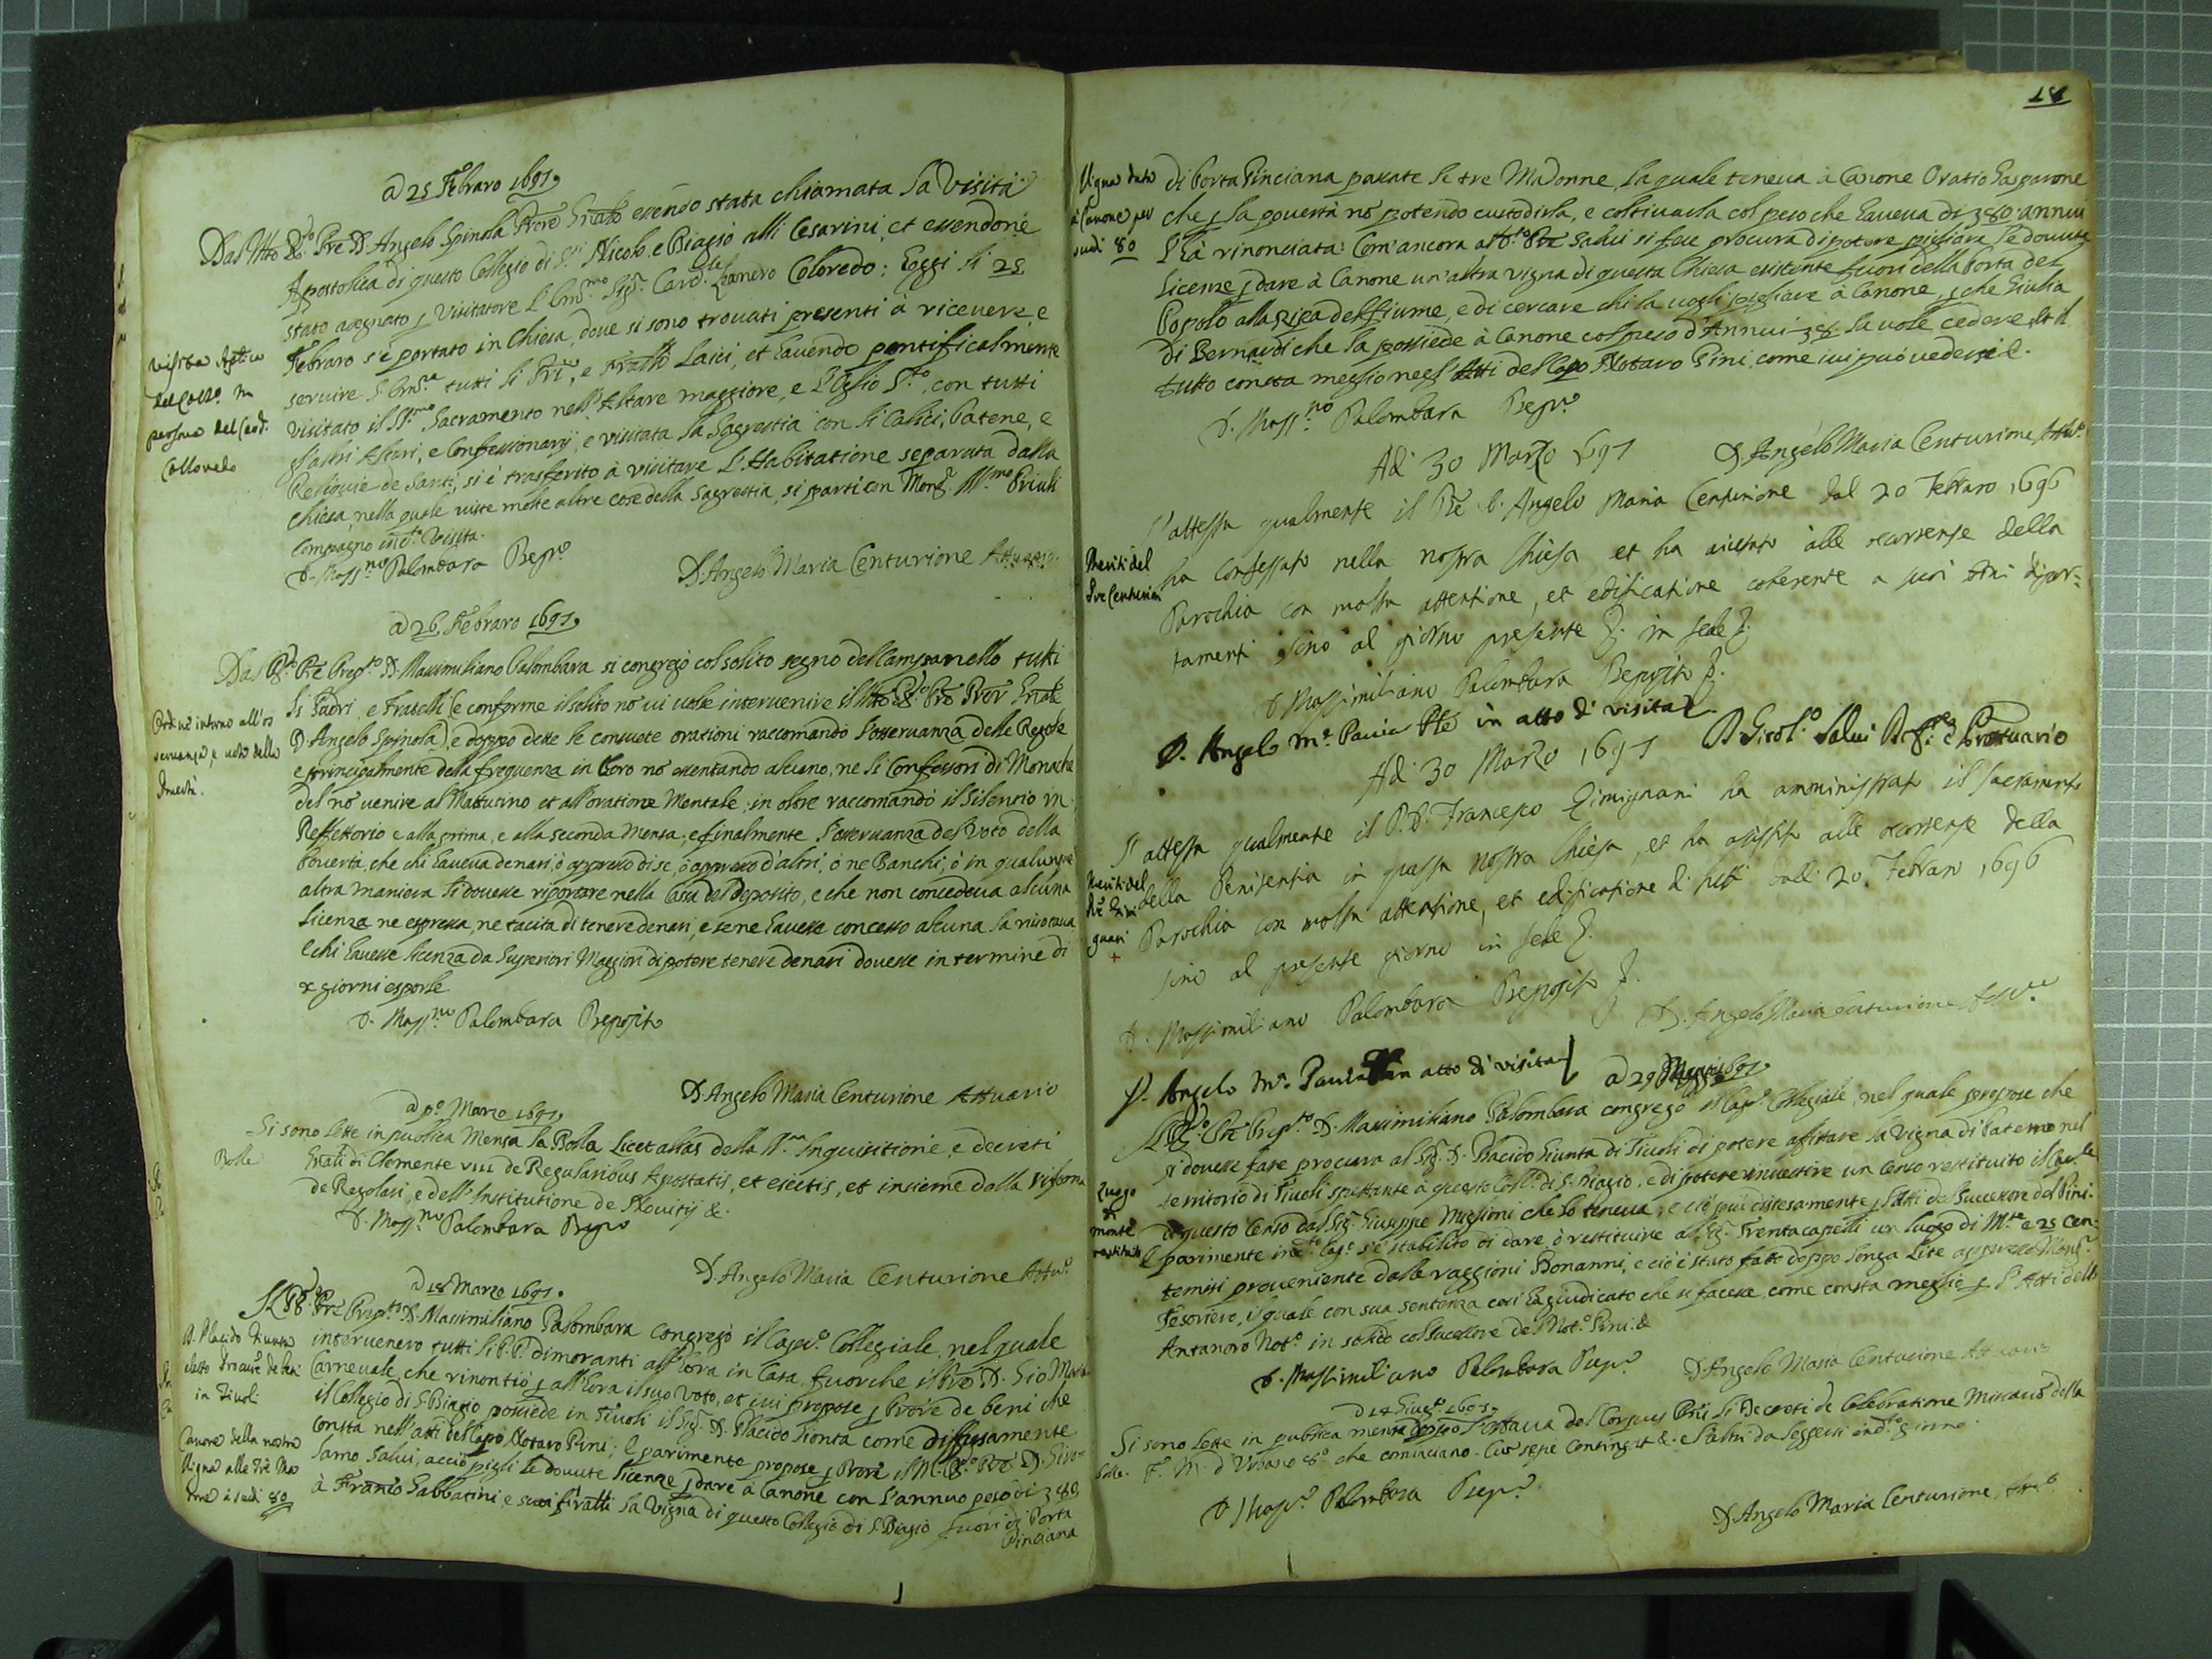 a 25 Febraro 1697.
Dal Mto Rdo Pre D. Angelo Spinola Prore Gnale essendo stata chiamata la Visita
Apostolica di questo Collegio di Sti Nicolo, e Biagio alli Cesarini, et essendone
stato asegnato p Visitatore l'Emmo Sigr Cardle Leandro Coloredo; Hoggi li 25
Febraro s'è portato in Chiesa, dove si sono trovati presenti à ricevere, e
servire S. Emza tutti li Pri, e Fratlli Laici, et havendo pontificalmente
visitato il SSmo Sacramento nell'Altare maggiore, e l'Oglio Sto, con tutti
gl'altri Altari, e Confessionarij, e visitata la Sagrestia con li Calici, Patene, e
Reliquie de Santi, si è trasferito à visitare l'Habitatione separata dalla
Chiesa, nella quale viste molte altre cose della Sagrestia, si partì con Monsr Illmo Priuli
Compagno in da Visita.
D. Massno Palombara Prepo
D. Angelo Maria Centurione Attuario.
Visita Aplica
del Collo in
persona del Card.
Colloredo
a 26 Febraro 1697.
Dal Rdo Pre Prepto D. Massimiliano Palombara si congregò col solito segno del Campanello tutti
li Padri, e Fratelli (e conforme il solito nõ vi volle intervenire il Mto Rdo Pre Pror Gnale
D. Angelo Spinola) e doppo dette le consuete orationi raccomandò l'osservanza delle Regole
e principalmente della frequenza in Coro nõ esentando alcuno, ne li Confessori di Monache
del nõ venire al Mattutino et all'oratione Mentale; in oltre raccomandò il Silentio in
Reffettorio e alla prima, e alla seconda Mensa; e finalmente l'osservanza del Voto della
Povertà, che chi haveva denari, ò appresso di se, ò appresso d'altri, ò ne Banchi, ò in qualunque
altra maniera li dovesse riportare nella Cassa del Deposito, e che non concedeva alcuna
licenza ne espressa, ne tacita di tenere denari, e se ne havesse concesso alcuna la rivocava
e chi havesse licenza da Superiori Maggiori di potere tenere denari dovesse in termine di
x giorni esporle
D. Massno Palombara Preposito
D. Angelo Maria Centurione Attuario
Ordine intorno all'os
servanza, e voto della
Povertà.
a po Marzo 1697.
Si sono lette in publica Mensa la Bolla Licet alias della Sta Inquisitione, e decreti
Gnali di Clemente VIII de Regularibus Apostatis, et eiectis, et insieme dalla riforma
de Regolari, e dell'Institutione de Novitij &c.
D. Massno Palombara Prepo
D. Angelo Maria Centurione Attuo
Bolle
a 18 Marzo 1697.
Il Rdo Pre Prepto D. Massimiliano Palombara congregò il Capo Collegiale, nel quale
intervenero tutti li P.P. dimoranti all'hora in Casa, fuorche il Pre D. Gio Maria
Carnevale che rinontiò p all'hora il suo Voto, et ivi propose p Prore de beni che
il Collegio di S. Biagio possiede in Tivoli il Sigr D. Placido Gionta come diffusamente
consta nell'atti del Capo Notaro Pini; E parimente propose p Prore il M. Rdo Pre D. Giro-
lamo Salvi, acciò pigli le dovute licenze p dare à Canone con l'annuo peso di 80
à Franco Sabbatini, e suoi Fratlli la Vigna di questo Collegio di S. Biagio fuori di Porta
Pinciana
D. Placido Giunta
eletto Procure de beni
in Tivoli
Canone della nostra
Vigna alle Trè Ma
donne à scudi 80
18
di Porta Pinciana passate le tre Madonne, la quale teneva à Canone Oratio Gasparone
che p la povertà nõ potendo custodirla, e coltivarla col peso che haveva di 80 annui
l'hà rinonciata: Com'ancora al Pre Salvi si fece procura di potere pigliare le dovute
licenze p dare à Canone un'altra vigna di questa Chiesa esistente fuori della Porta del
Popolo alla ripa del fiume, e di cercare chi la vogli pigliare à Canone, p che Giulia
di Bernardi che la possiede à Canone col peso d'Annui 8 la vole cedere, et il
tutto consta meglio negl'Atti del Capo Notaro Pini, come ivi può vedersi &.
D. Massno Palombara Prepo
D. Angelo Maria Centurione Attuo
Vigna data
à Canone per
scudi 80
Adi 30 Marzo 1697
S'attesta qualmente il Pre D. Angelo Maria Centurione dal 20 Febraro 1696
ha confessato nella nostra Chiesa et ha assistito alle occorrenze della
Parochia con molta attentione, et edificatione coherente a suoi boni dipor-
tamenti sino al giorno presente &. in fede &.
D. Massimiliano Palombara Preposito &.
D. Angelo Ma Pavia Pte in atto di visita
D. Girolo Salvi
Meriti del
Pre Centurioni
Adi 30 Marzo 1697
S'attesta qualmente il P. D. Francesco Gimignani ha amministrato il sacramento
della Penitentia in questa nostra Chiesa, et ha assistito alle occorrenze della
Parochia con molta attentione, et edificatione di tutti dalli 20 Febraro 1696
sino al presente giorno in fede &.
D. Massimiliano Palombara Preposito &.
D. Angelo Maria Centurione Attuo
D. Angelo Ma Pavia in atto di visita
Meriti del
Pre Gimi
gnani
+
a 29 1697.
Il Rdo Pre Prepto D. Massimiliano Palombara congregò il Capo Collegiale, nel quale propose che
si dovesse fare procura al Sigr D. Placido Giunta di Tivoli di potere affittare la Vigna di Paterno nel
territorio di Tivoli spettante à questo Collo di S. Biagio, e di potere rinvestire un Censo restituito il Caple
di questo Censo dal Sigr Giuseppe Missimi che lo teneva, e ciò più distesamente p l'Atti del Successore del Pini.
E parimente in do Capo s'è stabilito di dare, ò restituire al Sigr Trentacapelli un luogo di Mte e 25 cen-
tesimi proveniente dalle raggioni Bonanni, e ciò è stato fatto doppo longa Lite appresso Monsr
Tesoriero, il quale con sua sentenza così hà giudicato che si facesse, come consta meglio p l'Atti dello
Antanoro Noto in solido col successore del Noto Pini. &
D. Massimiliano Palombara Prepo
D. Angelo Maria Centurione Attuario
Luogo
di
monte
restituito
a 14 Giugo 1697.
Si sono lette in publica mensa doppo l'ottava del Corpus Dni li Decreti de Celebratione Missarum della
F. M. d'Urbano 8o che cominciano Cum sepe contingat &. e l'altri da leggersi in do giorno.
D. Massno Palombara Prepo
D. Angelo Maria Centurione, Attuo
Bolle.